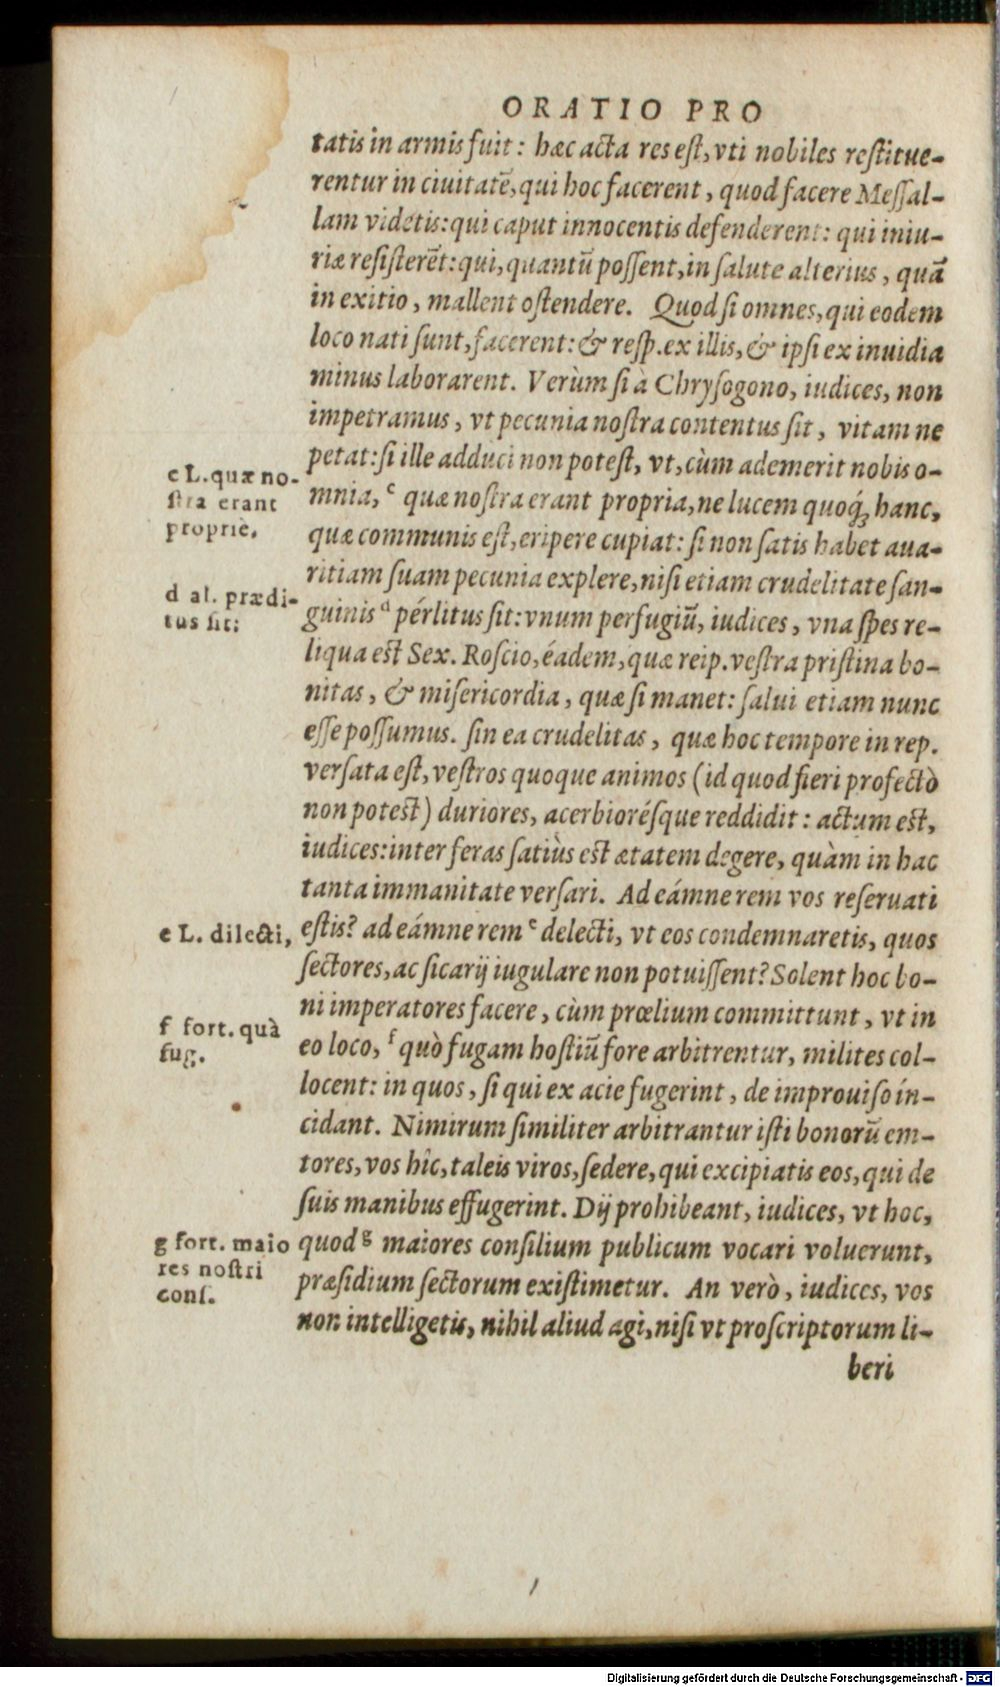 ORATIO PRO
tatis in armis fuit: hæc acta res est, vti nobiles restitue-
rentur in ciuitatẽ, qui hoc facerent, quod facere Messal-
lam videtis: qui caput innocentis defenderent: qui iniu-
riæ resisterẽt: qui, quantũ possent, in salute alterius, quã
in exitio, mallent ostendere. Quod si omnes, qui eodem
loco nati sunt, facerent: & resp. ex illis, & ipsi ex inuidia
minus laborarent. Verùm si à Chrysogono, iudices, non
impetramus, vt pecunia nostra contentus sit, vitam ne
petat: si ille adduci non potest, vt, cùm ademerit nobis o-
mnia, c quæ nostra erant propria, ne lucem quoq́; hanc,
quæ communis est, eripere cupiat: si non satis habet aua-
ritiam suam pecunia explere, nisi etiam crudelitate san-
guinis d pérlitus sit: vnum perfugiũ, iudices, vna spes re-
liqua est Sex. Roscio, éadem, quæ reip. vestra pristina bo-
nitas, & misericordia, quæ si manet: salui etiam nunc
esse possumus. sin ea crudelitas, quæ hoc tempore in rep.
versata est, vestros quoque animos (id quod fieri profectò
non potest) duriores, acerbiorésque reddidit: actum est,
iudices: inter feras satiùs est ætatem degere, quàm in hac
tanta immanitate versari. Ad eámne rem vos reseruati
estis? ad eámne rem e delecti, vt eos condemnaretis, quos
sectores, ac sicarij iugulare non potuissent? Solent hoc bo-
ni imperatores facere, cùm prœlium committunt, vt in
eo loco, f quò fugam hostiũ fore arbitrentur, milites col-
locent: in quos, si qui ex acie fugerint, de improuiso ín-
cidant. Nimirum similiter arbitrantur isti bonorũ em-
tores, vos hîc, taleis viros, sedere, qui excipiatis eos, qui de
suis manibus effugerint. Dij prohibeant, iudices, vt hoc,
quod g maiores consilium publicum vocari voluerunt,
præsidium sectorum existimetur. An verò, iudices, vos
non intelligetis, nihil aliud agi, nisi vt proscriptorum li-
beri
c L. quæ no-
stra erant
propriè.
d al. prædi-
tus sit:
e L. dilecti,
f fort. quà
fug.
g fort. maio
res nostri
cons.
Digitalisierung gefördert durch die Deutsche Forschungsgemeinschaft - DFG